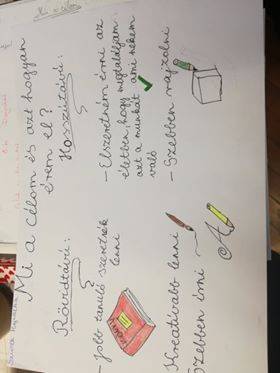 Mi a célom és azt hogyan
érem el?
Rövidtávú:
- Jobb tanuló szeretnék
lenni
Kreatívabb lenni
Szebben írni
A
Hosszútávú:
- Elszeretném érni az
életben, hogy megtaláljam
azt a munkát ami nekem
való
- Szebben rajzolni